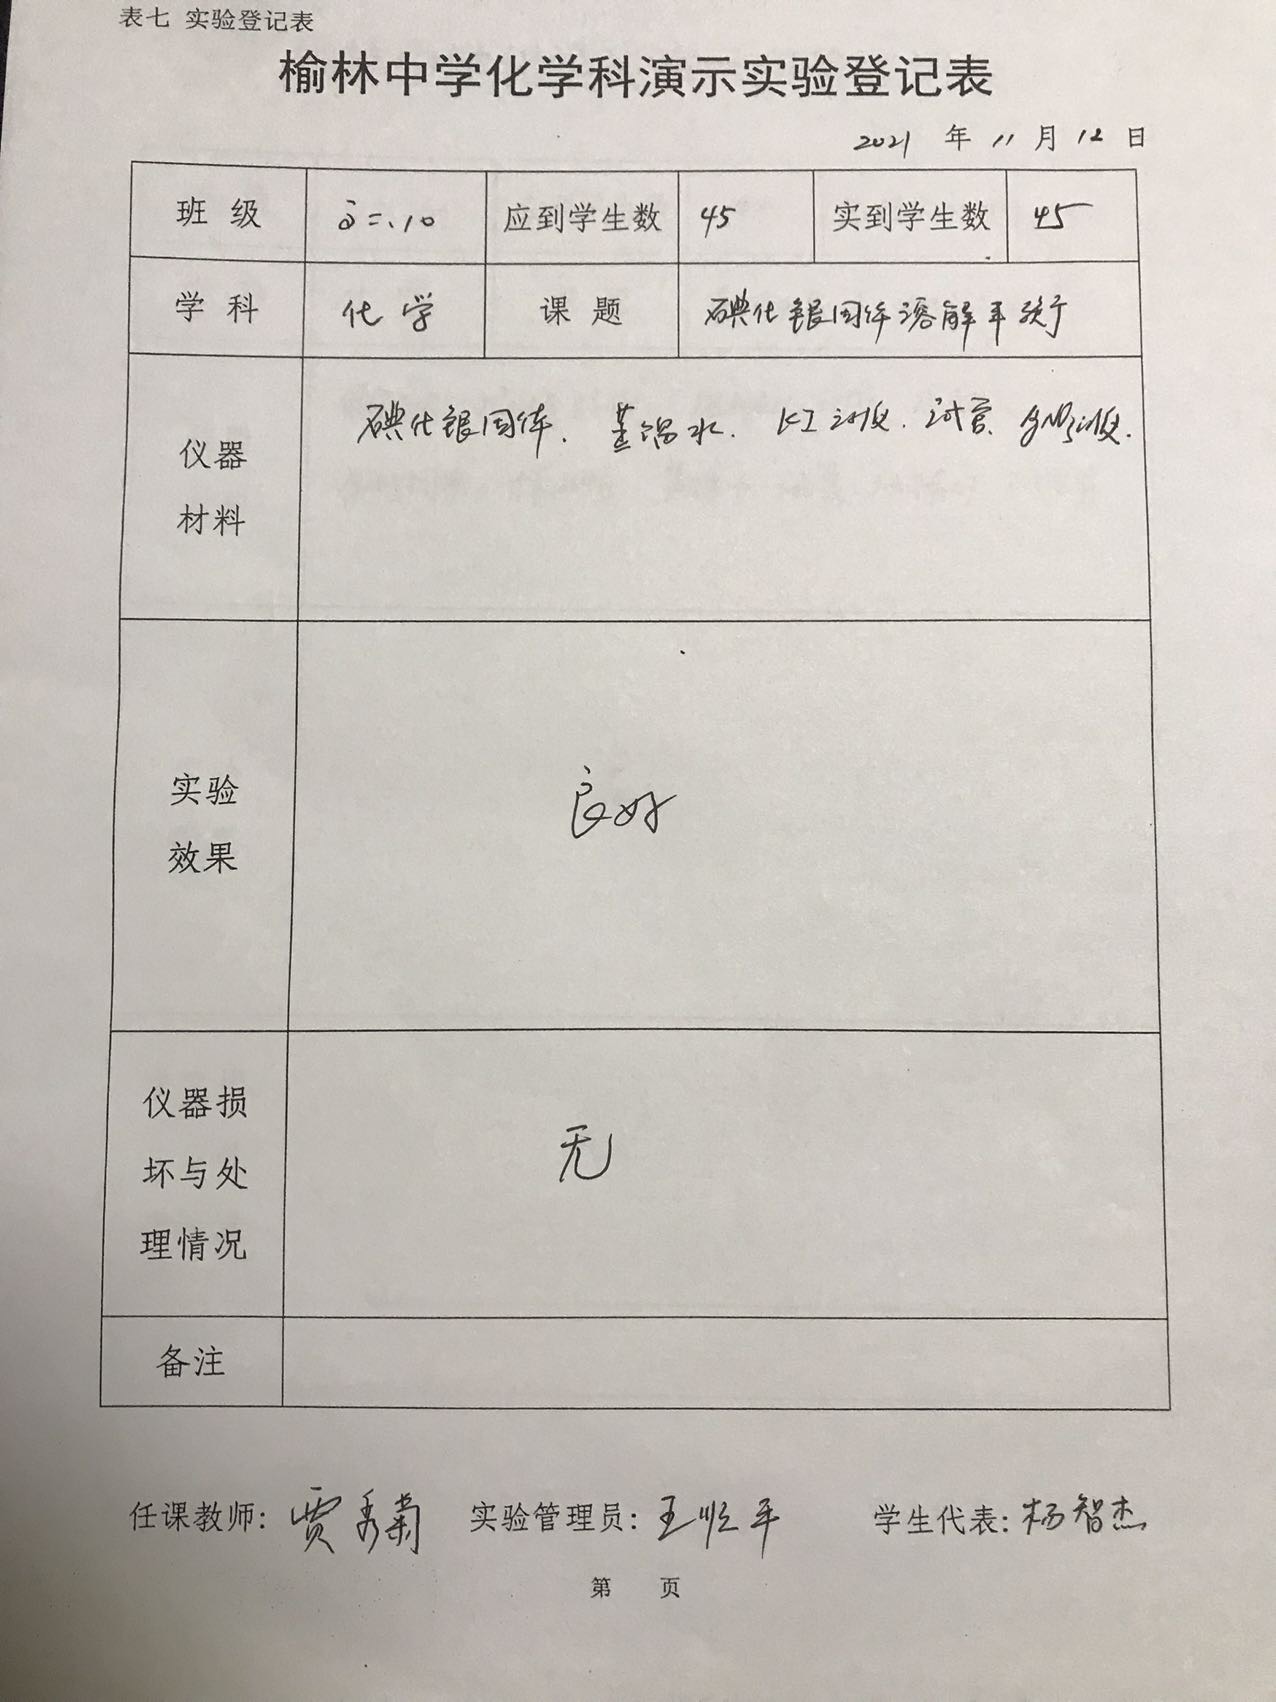 表七 实验登记表
榆林中学化学科演示实验登记表
2021 年 11 月 12 日
班 级 高二.10 应到学生数 45 实到学生数 45
学 科 化学 课 题 碘化银固体溶解平衡
仪器
材料
碘化银固体. 蒸馏水. KI 溶液. 试管. AgNO3溶液.
实验
效果
良好
仪器损
坏与处
理情况
无
备注
任课教师: 贾秀菊 实验管理员: 王顺平 学生代表: 杨智杰
第 页